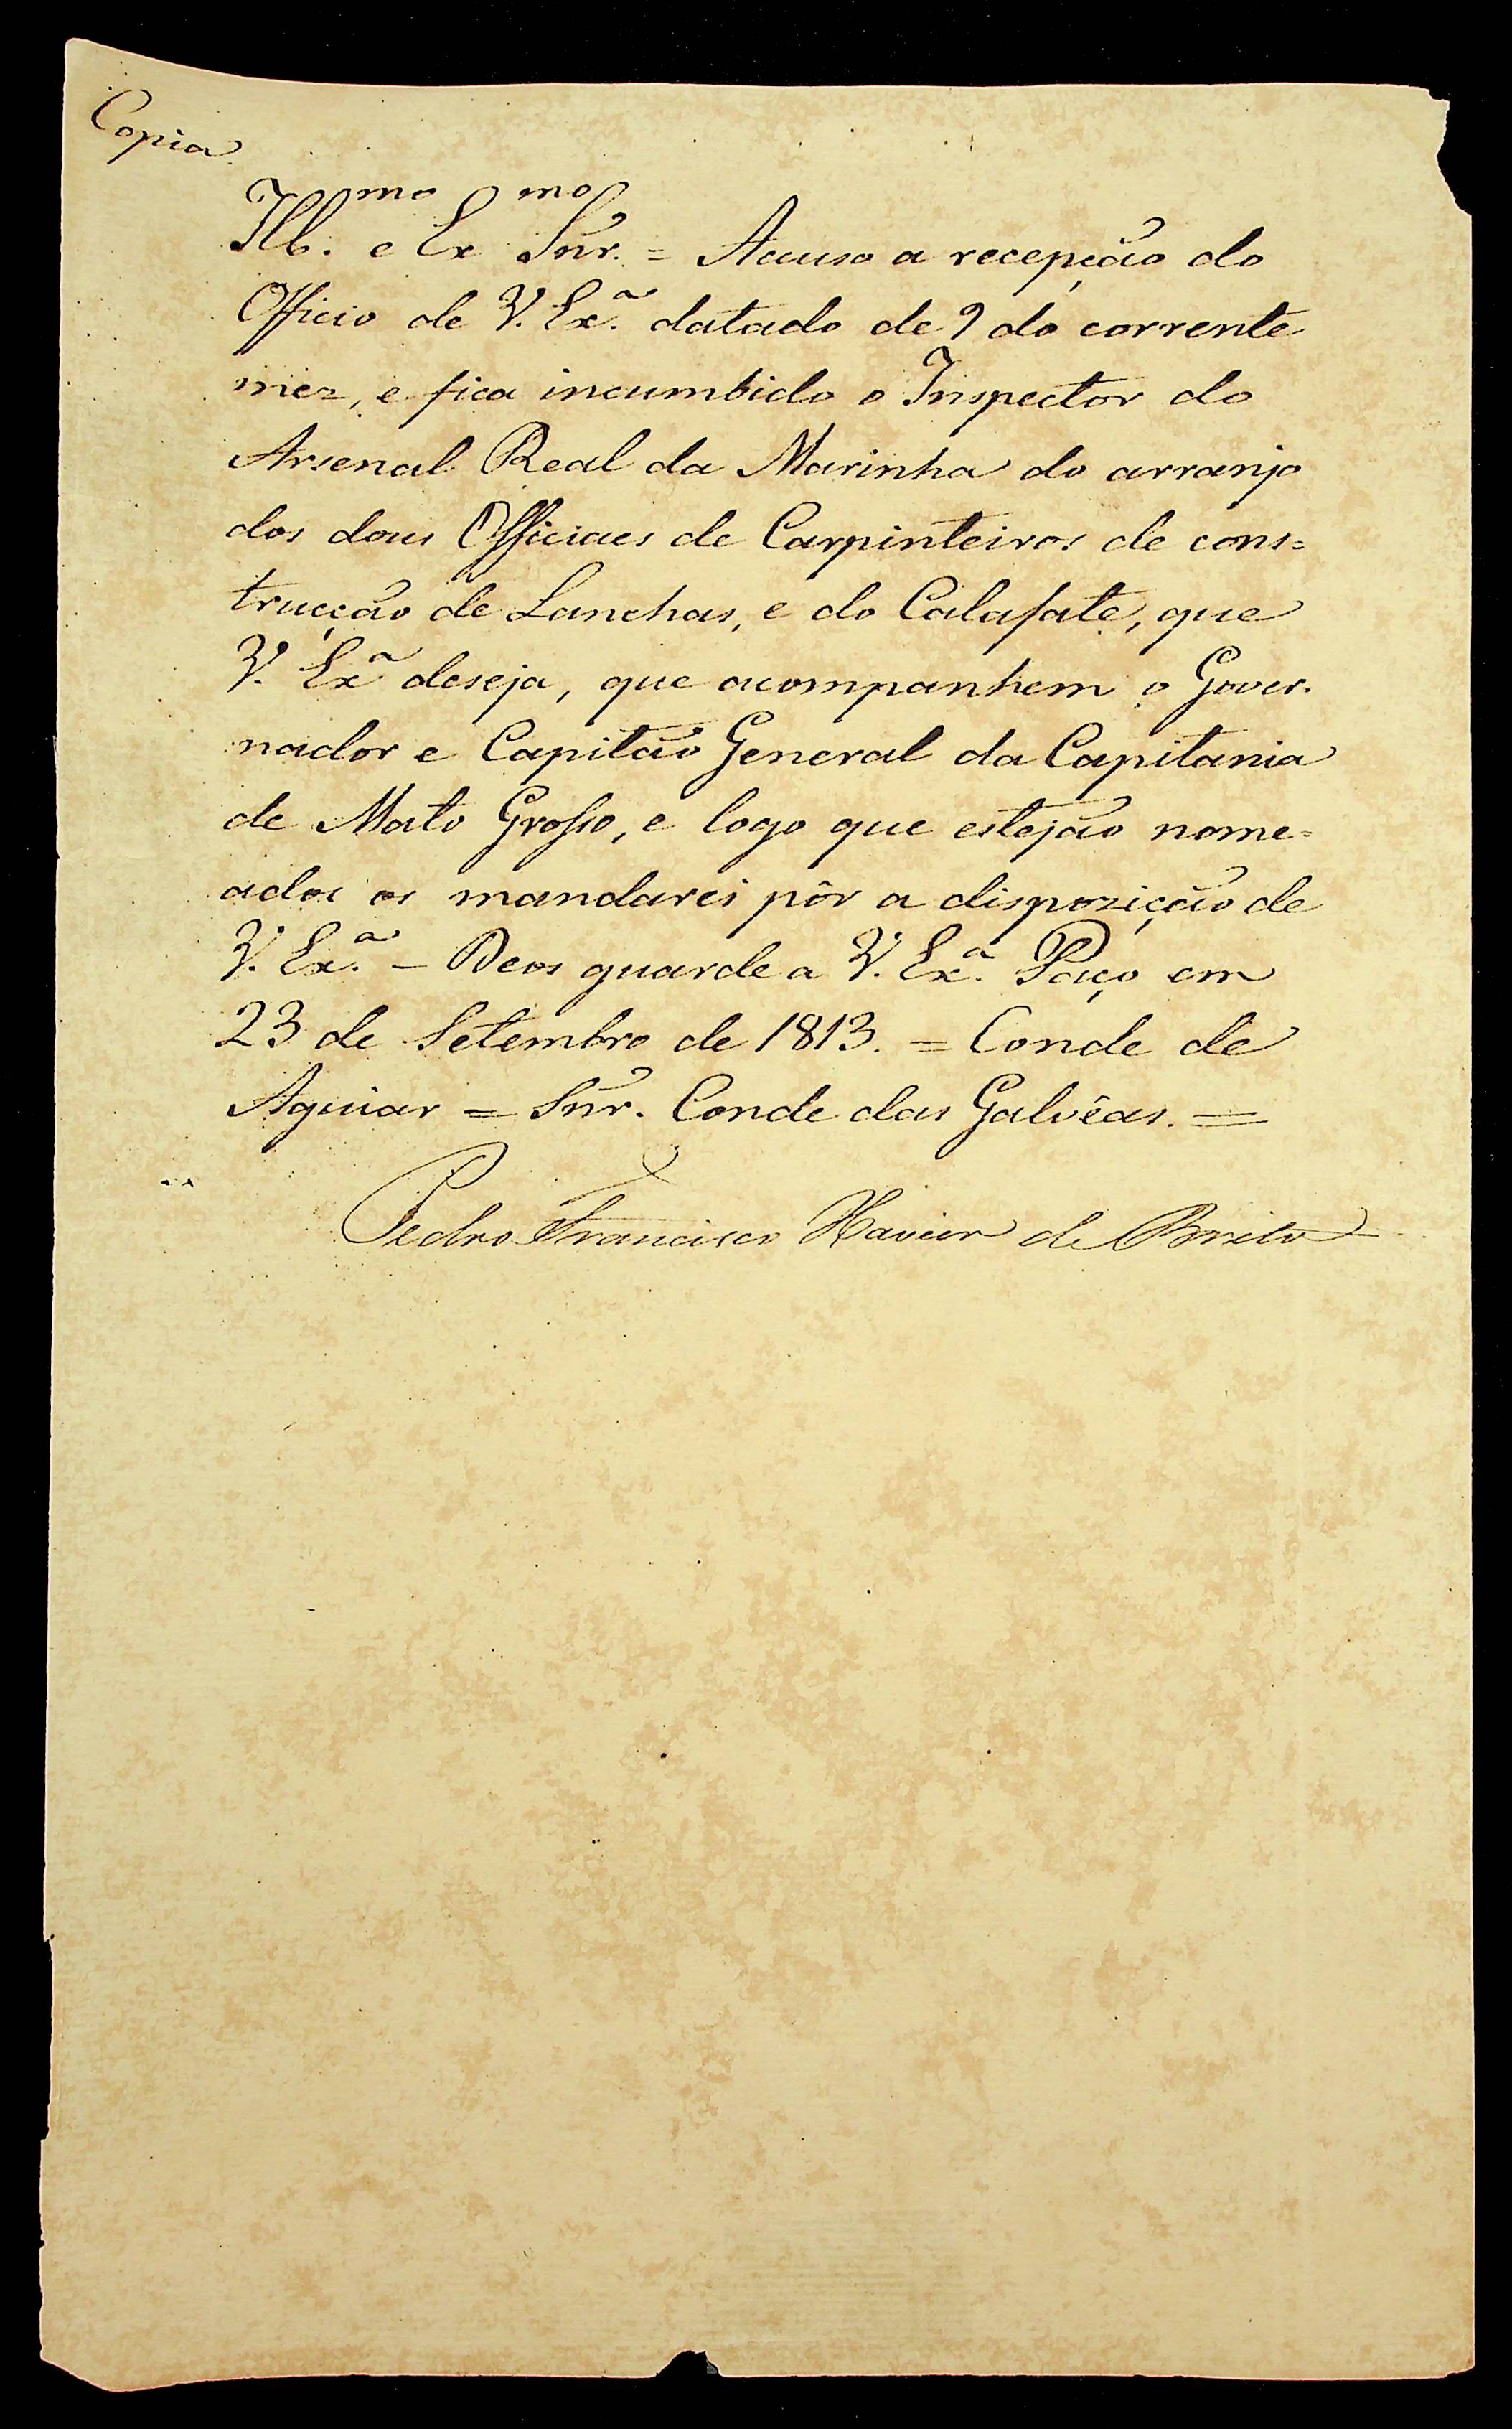 Copia
Ill.mo e Ex.mo Snr. = Acuso a recepção do
Officio de V. Ex.ª datado de 9 do corrente
mez, e fica incumbido o Inspector do
Arsenal Real da Marinha do arranjo
dos dous Officiaes de Carpinteiros de cons=
trucção de Lanchas, e do Calafate, que
V. Exª deseja, que acompanhem o Gover.
nador e Capitão General da Capitania
de Mato Grosso, e logo que estejão nome=
ados os mandarei pôr a disposição de
V. Ex.ª – Deos guarde a V. Ex.ª Paço em
23 de Setembro de 1813. = Conde de
Aguiar = Snr. Conde das Galvêas. =
Pedro Francisco Xavier de Brito